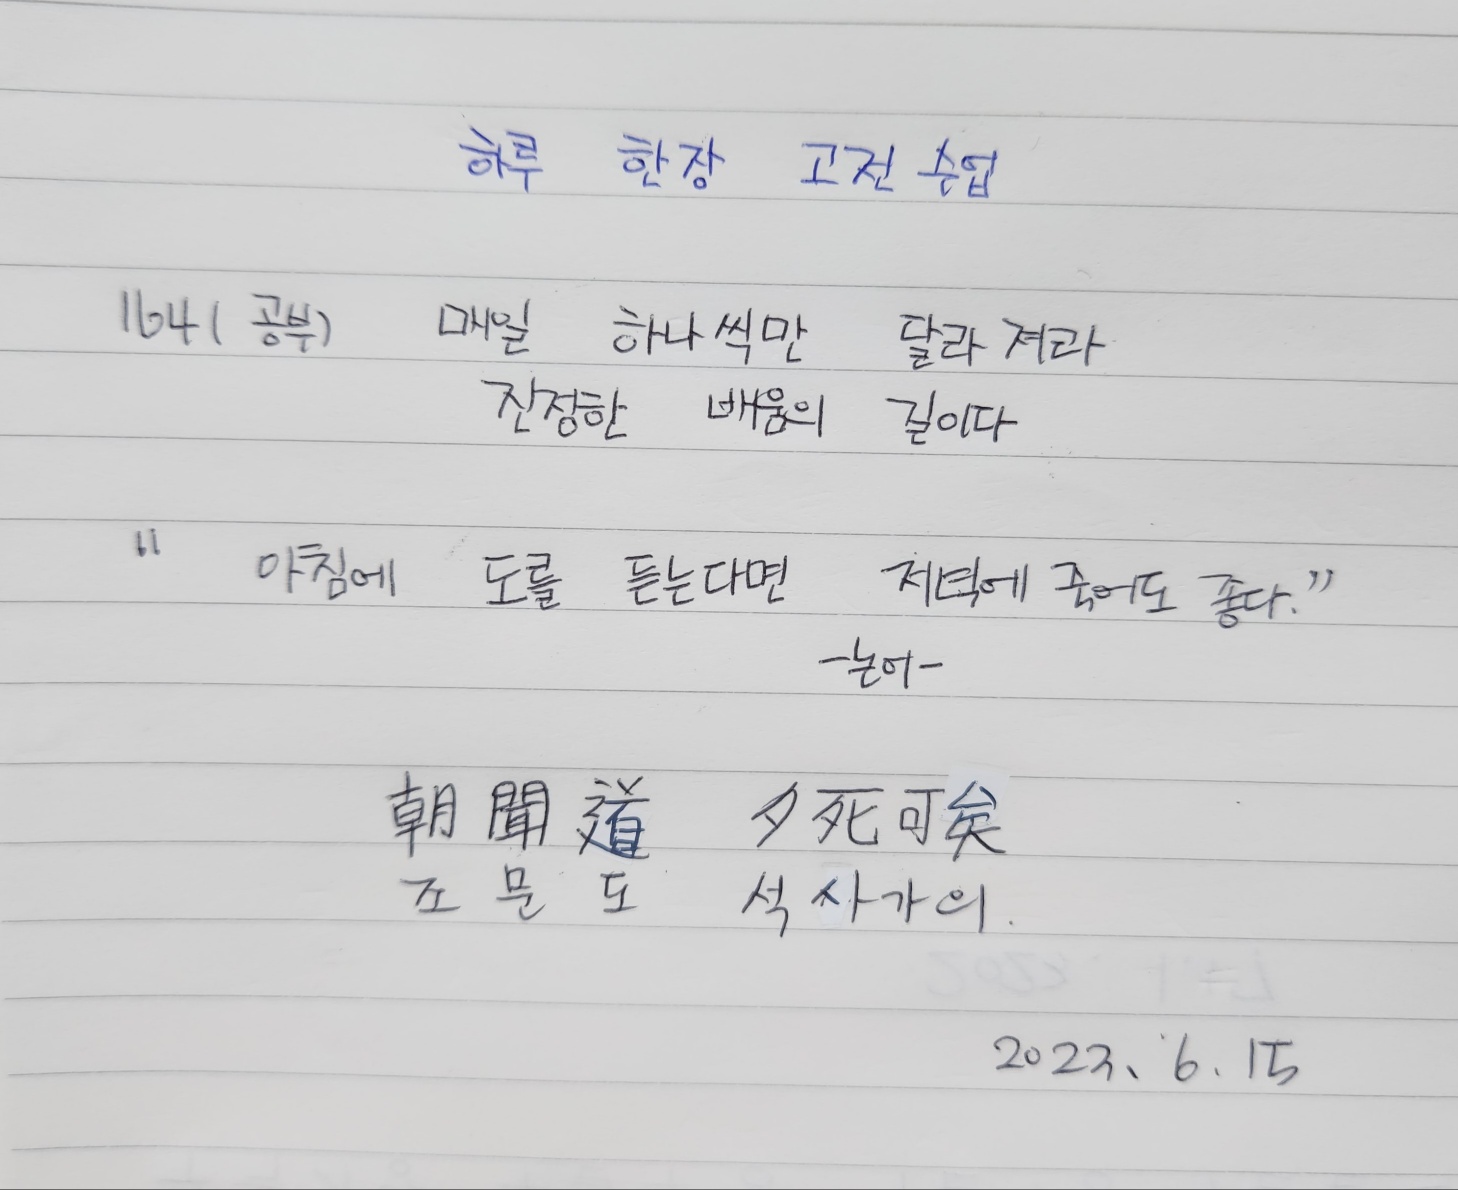 하루 한장 고전 수업
164(공부) 매일 하나씩만 달라져라
진정한 배움의 길이다
" 아침에 도를 듣는다면 저녁에 죽어도 좋다."
-논어-
朝聞道 夕死可矣
조문도 석사가의.
2023. 6. 15